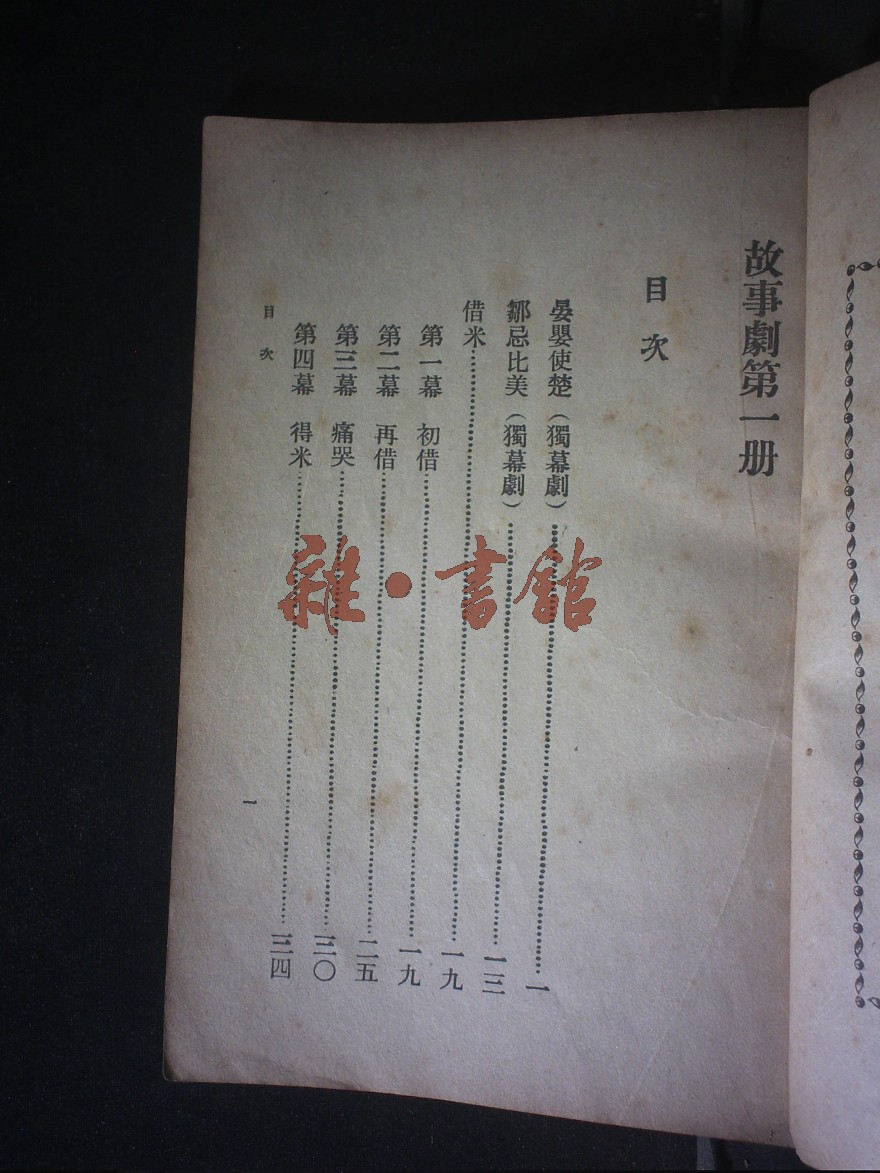 故事劇第一册
目次
晏嬰使楚(獨幕劇)……一
鄒忌比美(獨幕劇)……一三
借米……一九
第一幕 初借……一九
第二幕 再借……二五
第三幕 痛哭……三〇
第四幕 得米……三四
目次
一
雜·書館